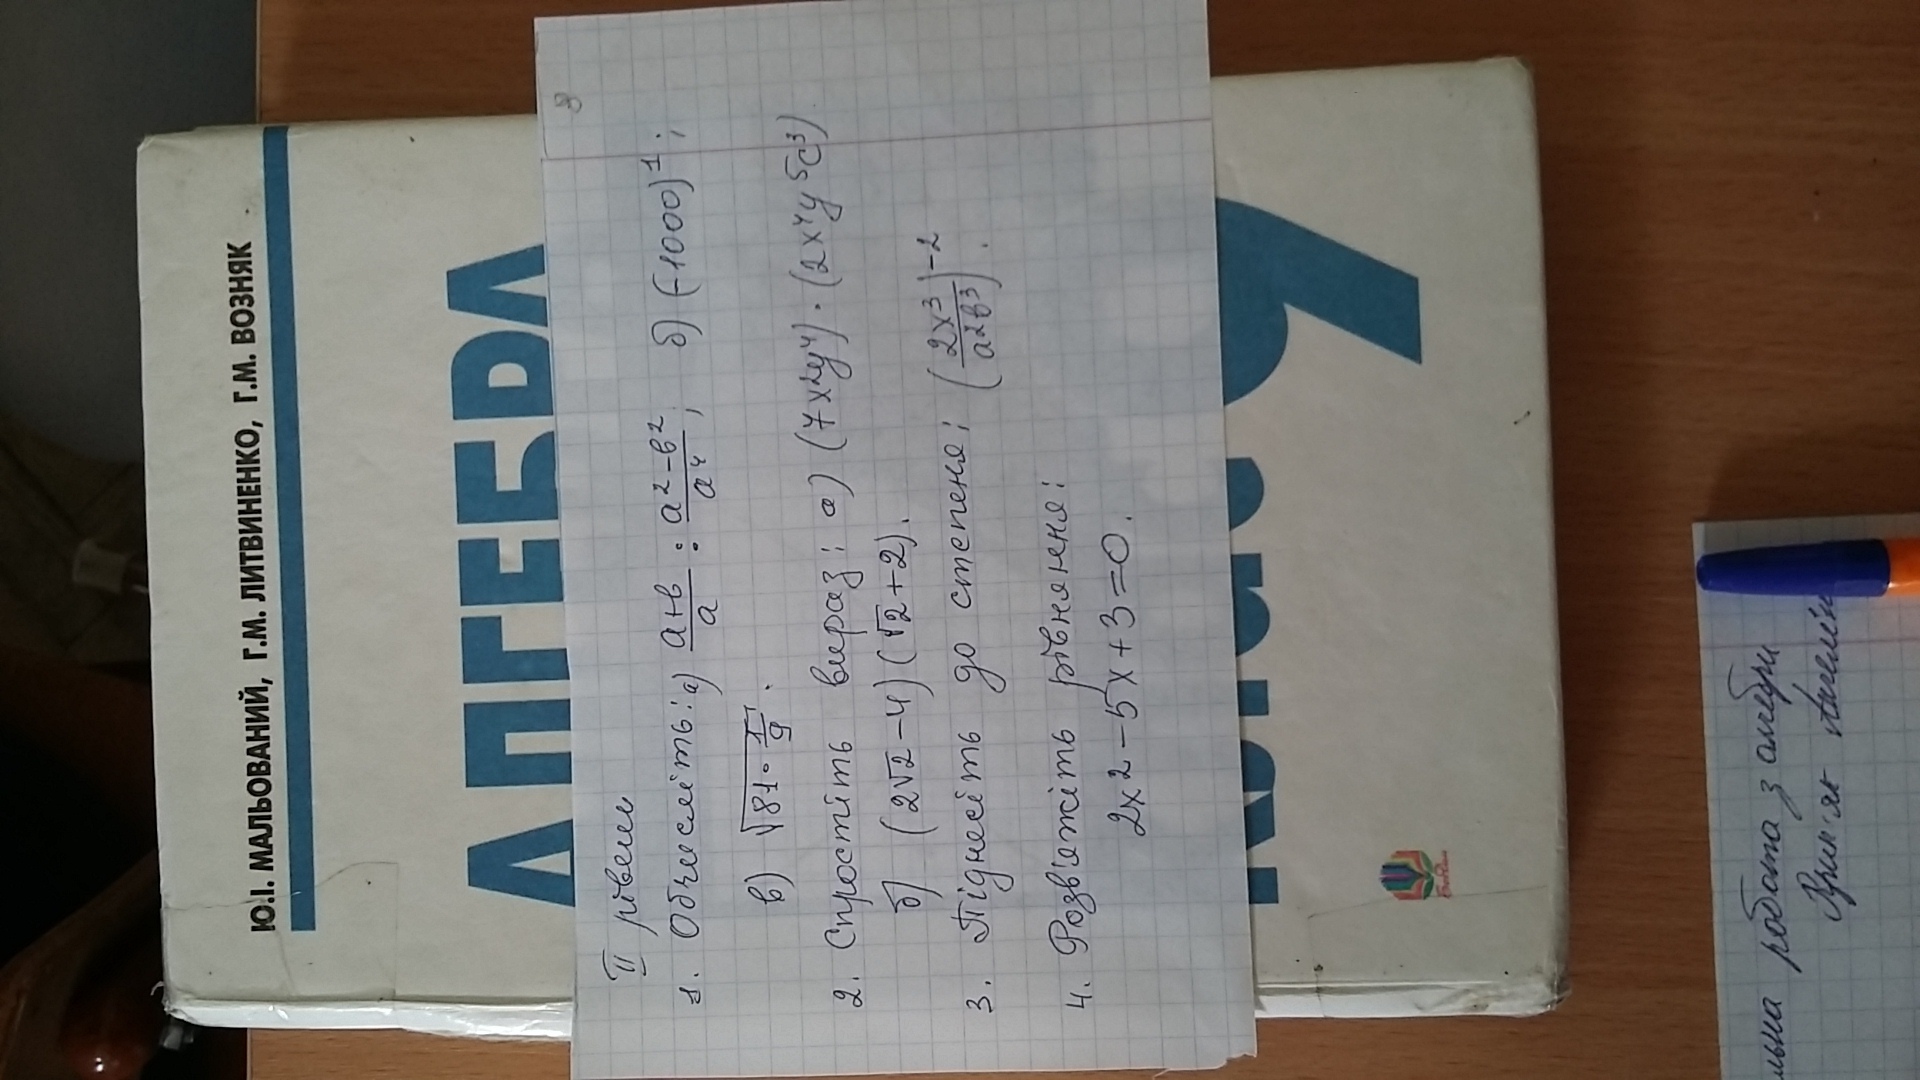 Ю.І. МАЛЬОВАНИЙ, Г.М. ЛИТВИНЕНКО, Г.М. ВОЗНЯК
АЛГЕБРА
II рівень
1. Обчисліть: а) (a+b)/a : (a²-b²)/a⁴; б) (-1000)¹;
в) √(81·1/9).
2. Спростіть вираз: а) (7x²y⁴)·(2x⁴y⁵c³)
б) (2√2-4)(√2+2).
3. Піднесіть до степеня: (2x³/(a²b³))⁻².
4. Розв'яжіть рівняння:
2x2-5x+3=0.
робота з алгебри